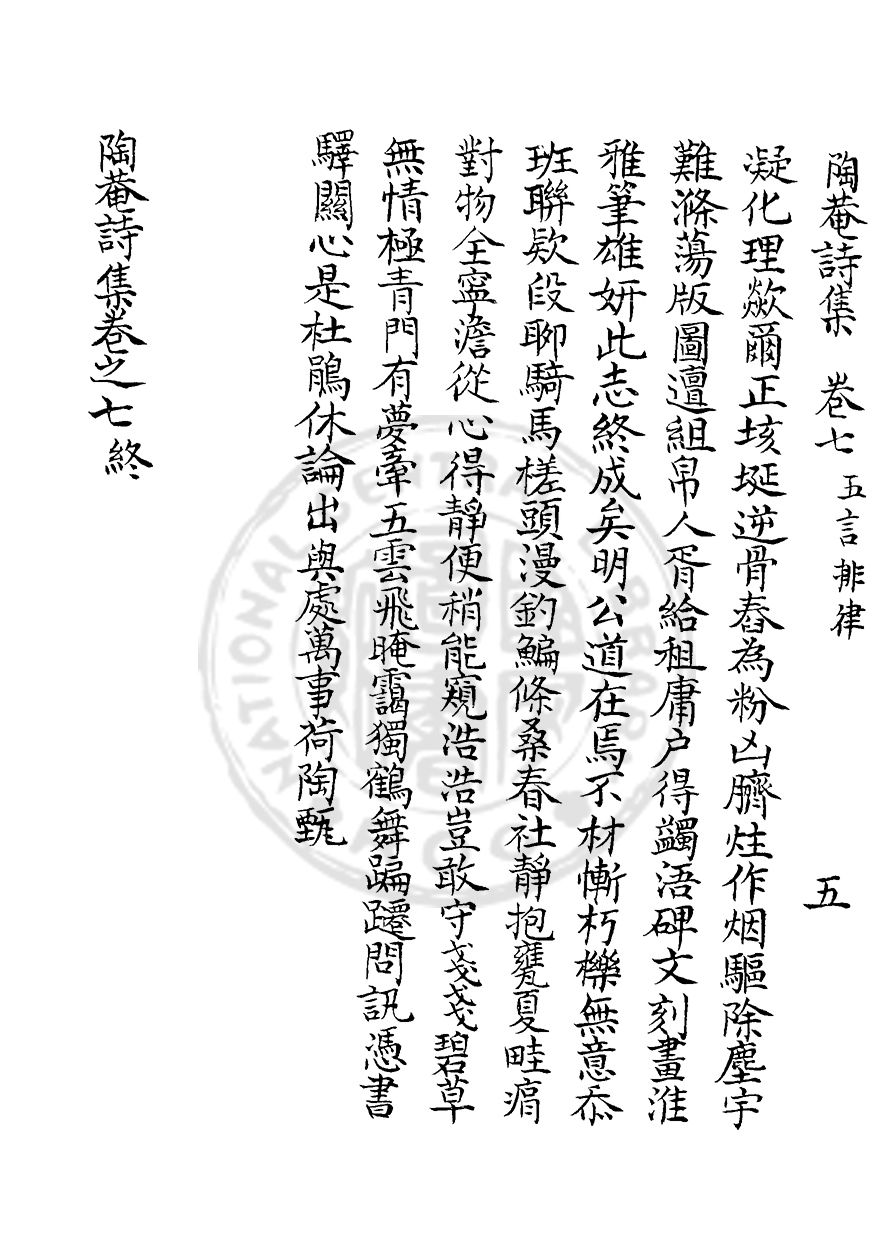 陶菴詩集 卷七 五言排律 五
凝化理歘爾正垓埏逆骨舂為粉凶臍炷作烟驅除塵宇
難滌蕩版圖邅組帛人胥給租庸户得蠲浯碑文刻畫淮
雅筆雄妍此志終成矣明公道在焉不材慚朽櫟無意忝
班聯欵段聊騎馬槎頭漫釣鯿條桑春社靜抱甕夏畦痟
對物全寧澹從心得靜便稍能窺浩浩豈敢守戔戔碧草
無情極青門有夢牽五雲飛晻靄獨鶴舞蹁躚問訊憑書
驛關心是杜鵑休論出與處萬事荷陶甄
陶菴詩集卷之七終
NATIONAL CENTRAL LIBRARY